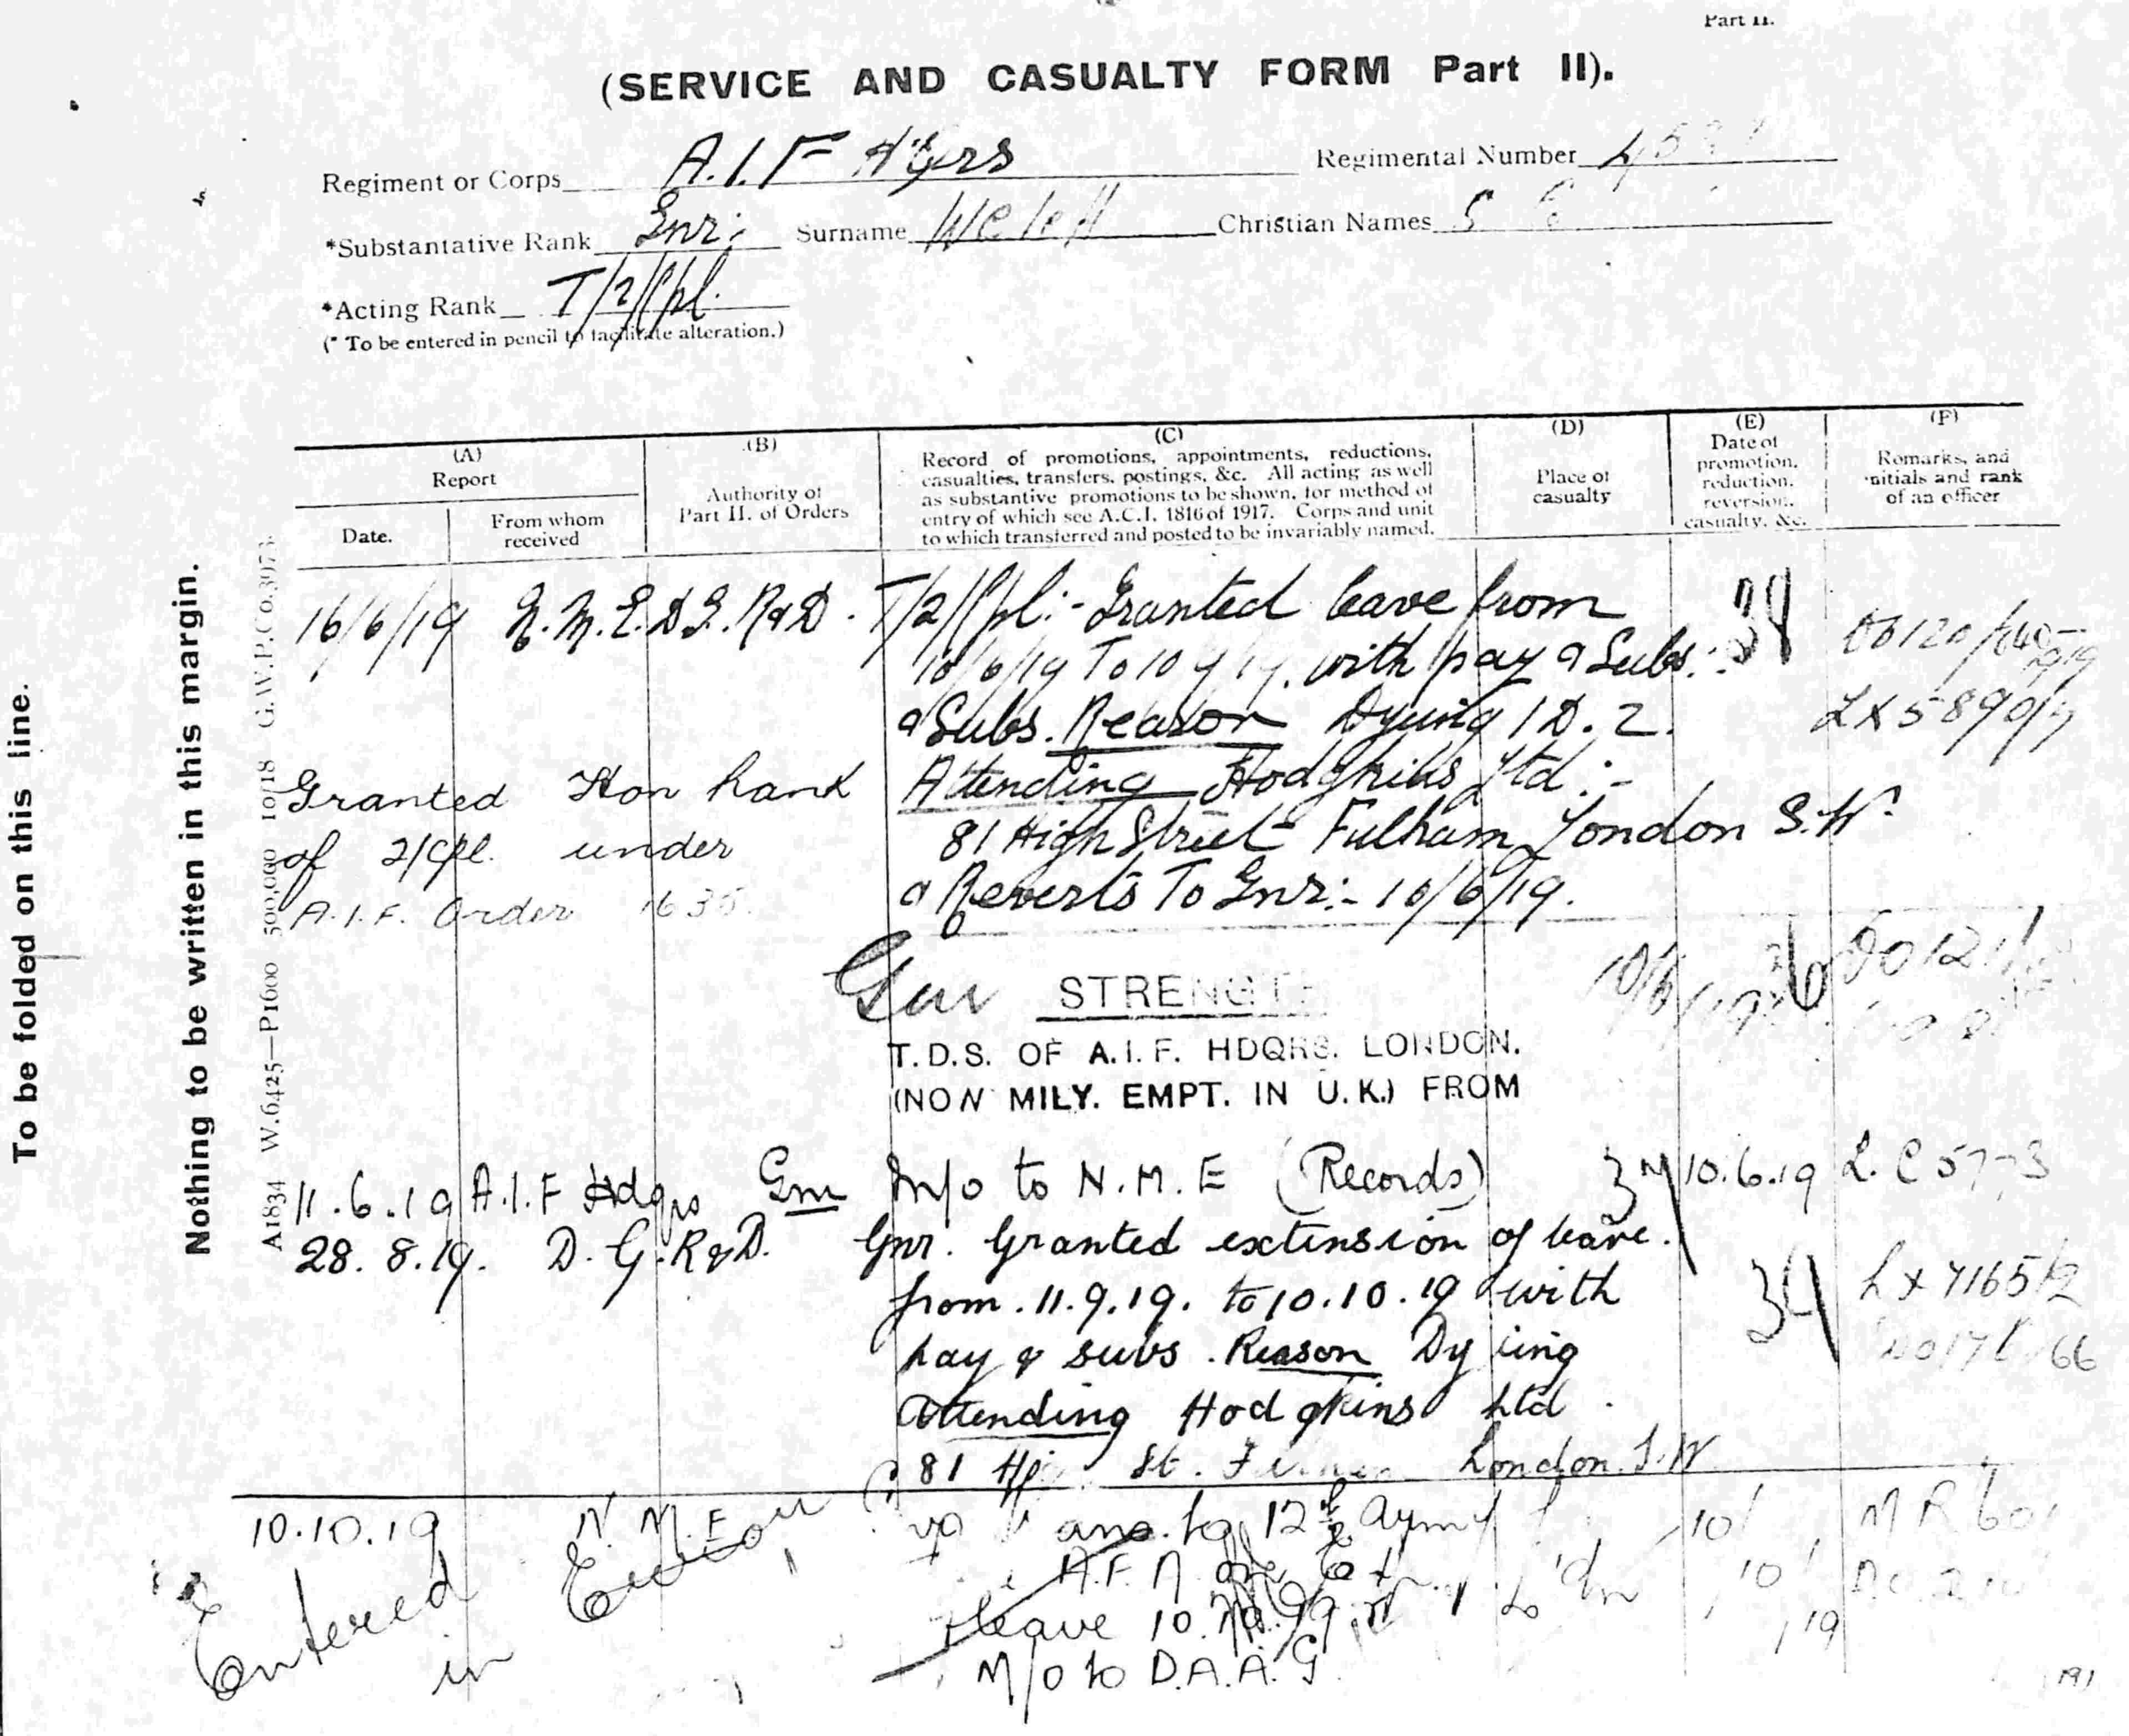 Part II.
(SERVICE AND CASUALTY FORM Part II).
Regiment or Corps A.I.F Hqrs Regimental Number
*Substantative Rank Gnr: Surname Christian Names S
*Acting Rank T/2/Cpl.
(* To be entered in pencil to facilitate alteration.)
To be folded on this line.
Nothing to be written in this margin.
A1834 W.6425—P1600 500,000 10/18 G.W.P.Co.3973
(A) (B) (C) (D) (E) (F)
Report
Date. From whom received
Authority of Part II. of Orders
Record of promotions, appointments, reductions,
casualties, transfers, postings, &c. All acting as well
as substantive promotions to be shown, for method of
entry of which see A.C.I. 1816 of 1917. Corps and unit
to which transferred and posted to be invariably named.
Place of casualty
Date of promotion, reduction, reversion, casualty, &c.
Remarks, and initials and rank of an officer
16/6/19 N.M.E. D.G.R&D. T/2/Cpl:- Granted leave from 34
10/6/19 To 10 9 19. with pay & Subs:
& Subs. Reason Dyeing 1 D. 2. LX5890/
Attending Hodgkins Ltd:-
81 High Street Fulham London S.W.
& Reverts To Gnr:- 10/6/19.
Granted Hon Rank
of 2/Cpl. under
A.I.F. Order 1635.
Gnr STRENGTH
T.D.S. OF A.I.F. HDQRS. LONDON.
(NON MILY. EMPT. IN U.K.) FROM
10/6/19
11.6.19 A.I.F Hdqrs Gnr M/o to N.M.E (Records) 34 10.6.19 L.C 5773
28.8.19. D.G.R&D. Gnr. Granted extension of leave.
from 11.9.19. to 10.10.19 with 34 LX 7165/2
pay & subs. Reason Dyeing 66
attending Hodgkins Ltd.
81 St. London. S.W
10.10.19 N.M.E to 12 Army 10 M R 60
A.F.N
leave 10. 19
M/o to D.A.A.G.
Entered
in